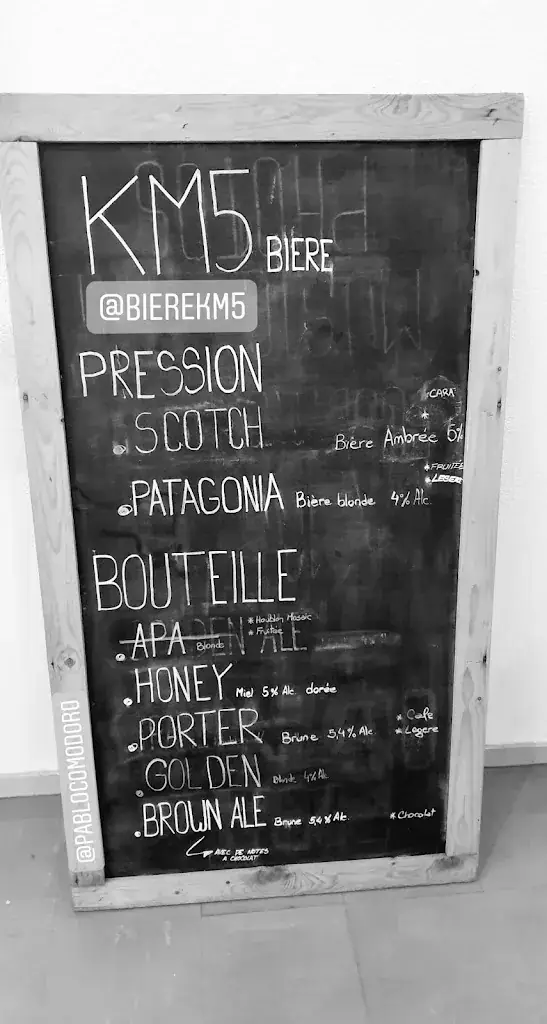 KM5 BIERE
@BIEREKM5
PRESSION
CARA
*
. SCOTCH Bière Ambrée 5%
* FRUITÉE
* LEGERE
. PATAGONIA Bière blonde 4% Alc.
BOUTEILLE
* Houblon Mosaic
. APA Blonde * Fruitée
. HONEY Miel 5% Alc. dorée
* Cafe
. PORTER Brune 5,4% Alc. * Légere
. GOLDEN Blonde 4% Alc
. BROWN ALE Brune 5,4% Alc. * Chocolat
AVEC DE NOTES
A CHOCOLAT
@PABLOCOMODORO